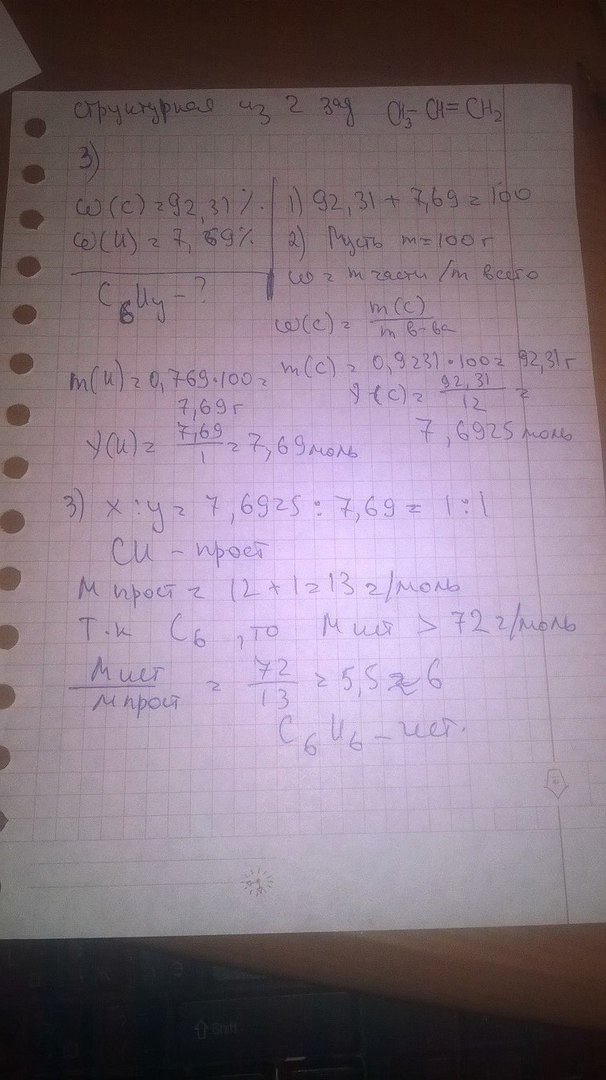 структурная из 2 зад CH3-CH=CH2
3)
ω(C)=92,31%.
ω(H)=7,69%
C6Hy-?
1) 92,31+7,69=100
2) Пусть m=100г
ω=m части/m всего
ω(C)= m(C)/m в-ва
m(C)=0,9231·100=92,31г
ν(C)= 92,31/12 =
7,6925моль
m(H)=0,769·100=
7,69г
ν(H)= 7,69/1 =7,69моль
3) x:y=7,6925:7,69=1:1
CH-прост
M прост=12+1=13г/моль
Т.к C6, то M ист > 72г/моль
M ист/M прост = 72/13 =5,5≈6
C6H6-ист.
Shift